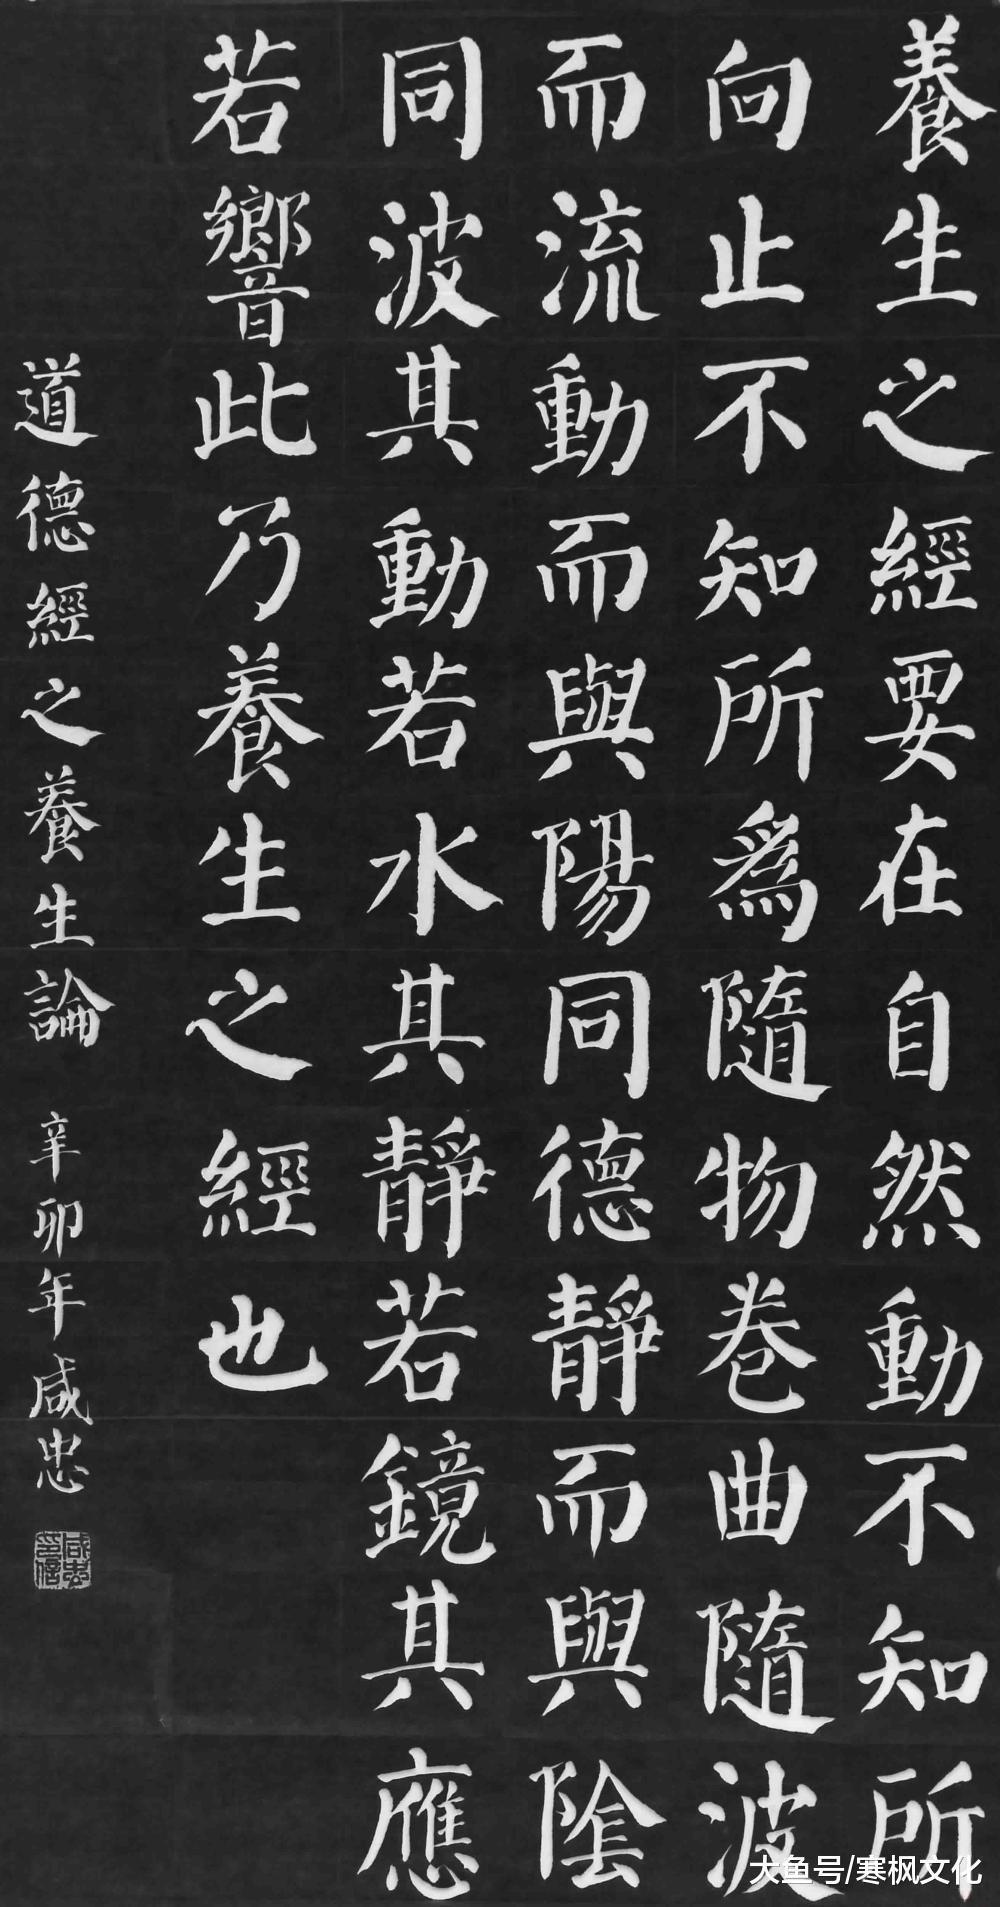 養生之經要在自然動不知所
向止不知所爲隨物卷曲隨波
而流動而與陽同德靜而與陰
同波其動若水其靜若鏡其應
若響此乃養生之經也
道德經之養生論 辛卯年咸忠
咸忠印信
大鱼号/寒枫文化